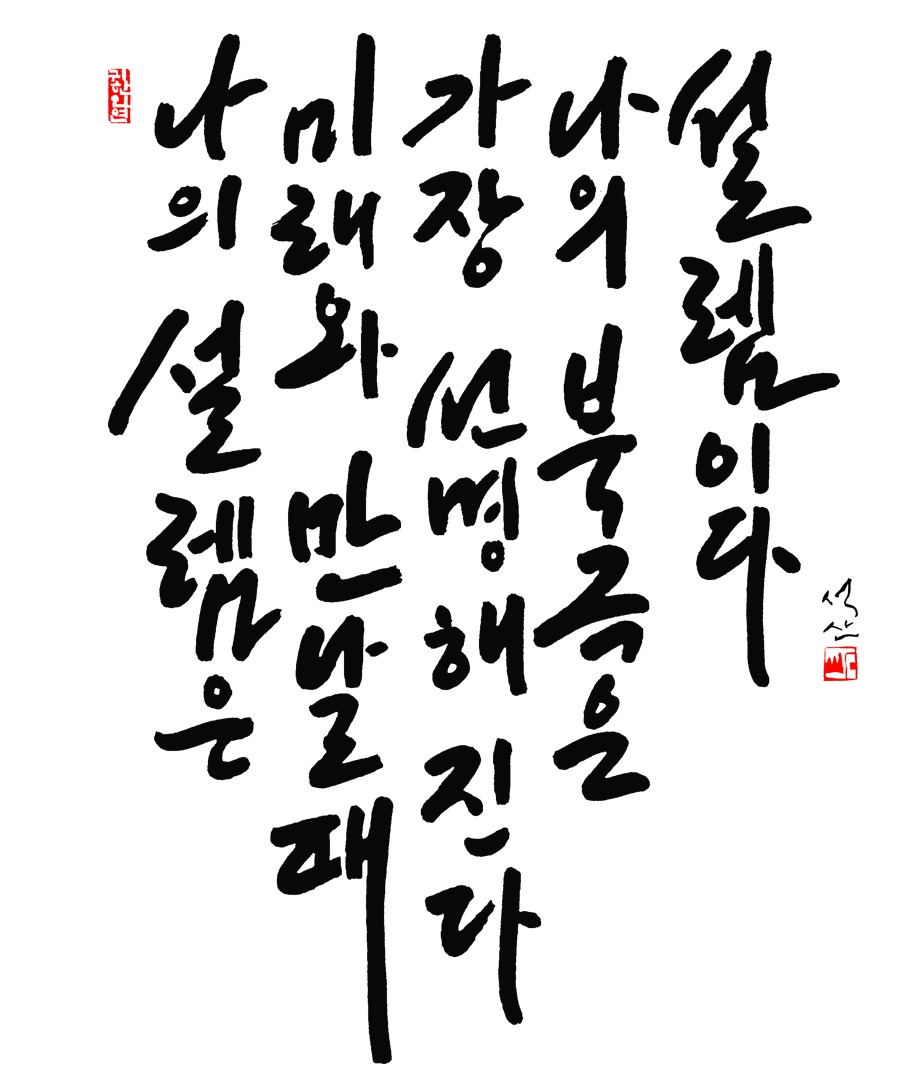 나의 설렘은
미래와 만날 때
가장 선명해진다
나의 북극은
설렘이다
석산